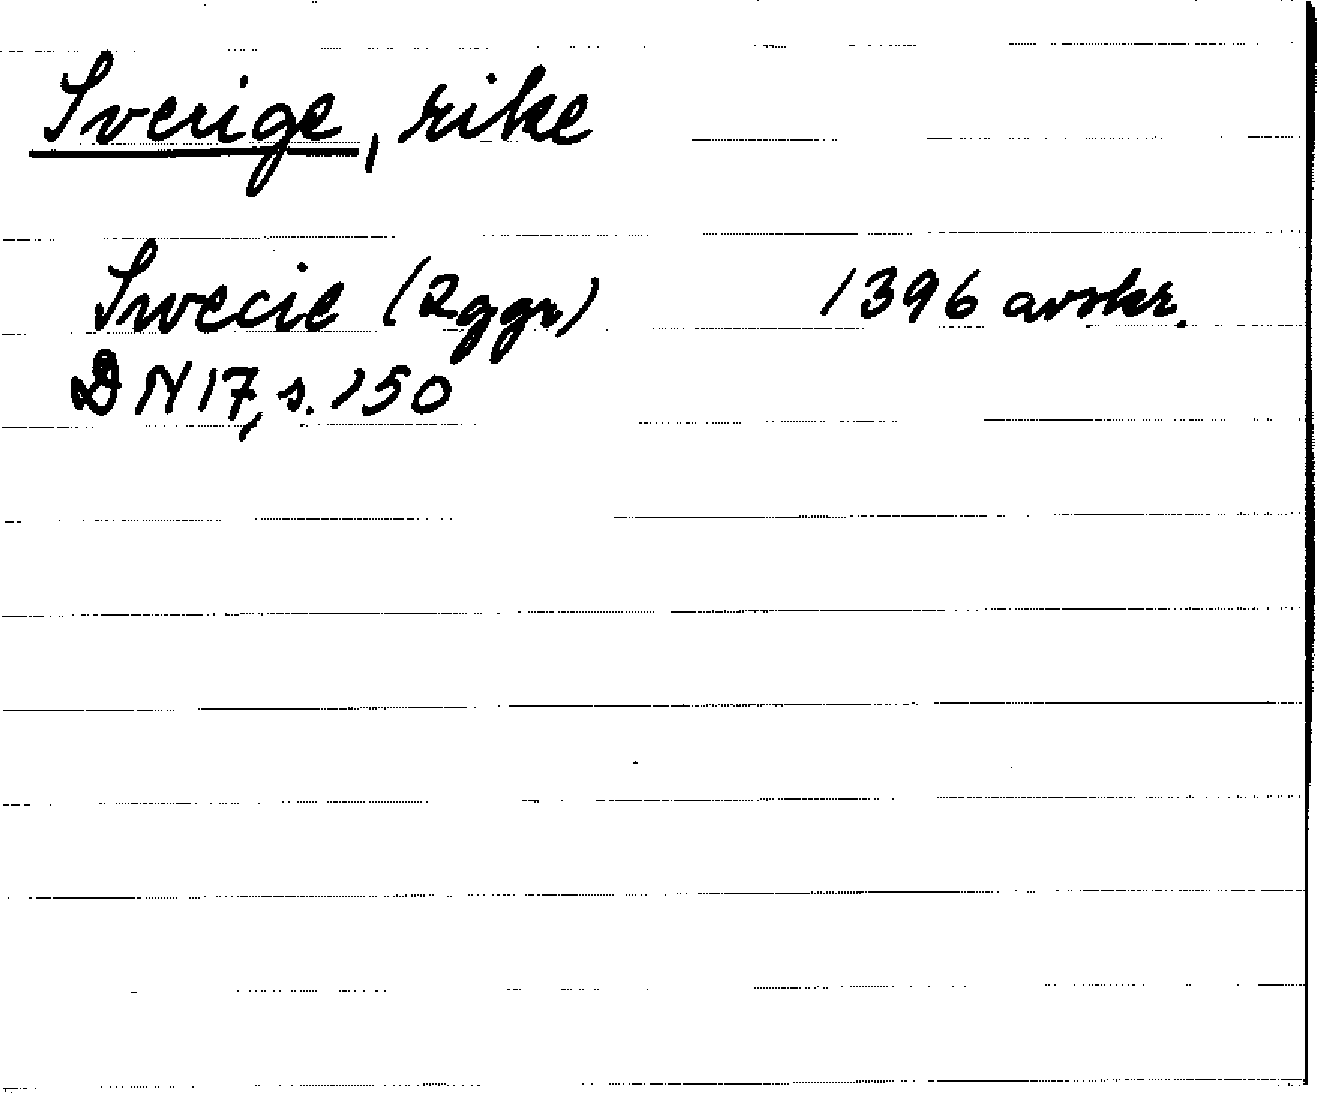 Sverige, rike
Swecie (2ggr) 1396 avskr.
DN17, s. 150